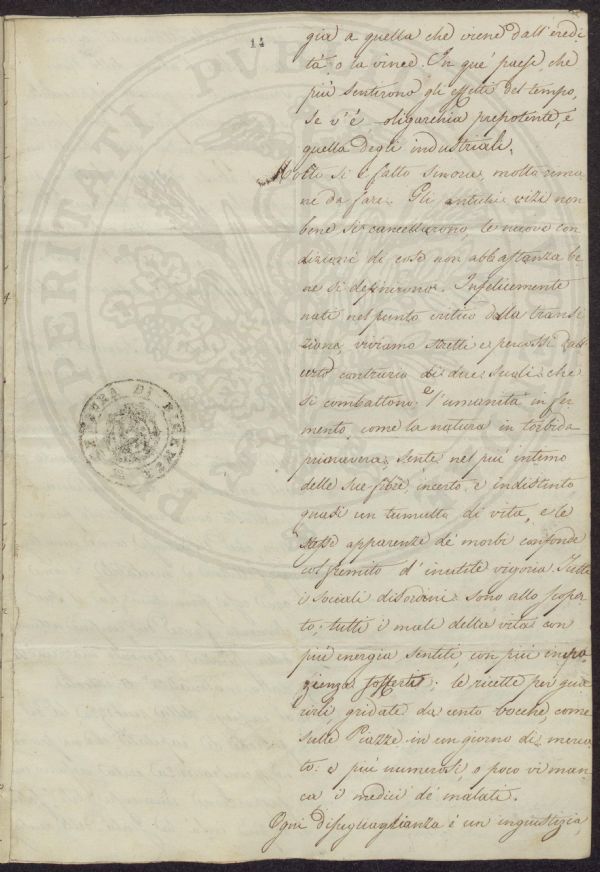 14
gia a quella che viene dall'eredi
tà, o la vince. In que' paesi, che
più sentirono gli effetti del tempo,
se v'è oligarchia prepotente, è
quella degli industriali.
Molto si è fatto sinora, molto rima
ne da fare. Gli antichi vizi non
bene si cancellarono, le nuove con
dizioni di cose non abbastanza be
ne si definirono. Infelicemente
nati nel punto critico della transi
zione, viviamo stretti e percossi dall'
urto contrario di due secoli che
si combattono: e l'umanità in fer
mento come la natura in torbida
primavera, sente nel più intimo
delle sue fibre incerto e indistinto
quasi un tumulto di vita, e le
stesse apparenze de' morbi confonde
col fremito d'inutile vigoria. Tutti
i sociali disordini sono allo scoper
to, tutti i mali della vita con
più energia sentiti, con più impa
zienza sofferti: le ricette per gua
rirli gridate da cento bocche come
sulle Piazze in un giorno di merca
to: e più numerosi, o poco vi man
ca i medici de' malati.
Ogni diseguaglianza è un ingiustizia,
PERITATI PVBL